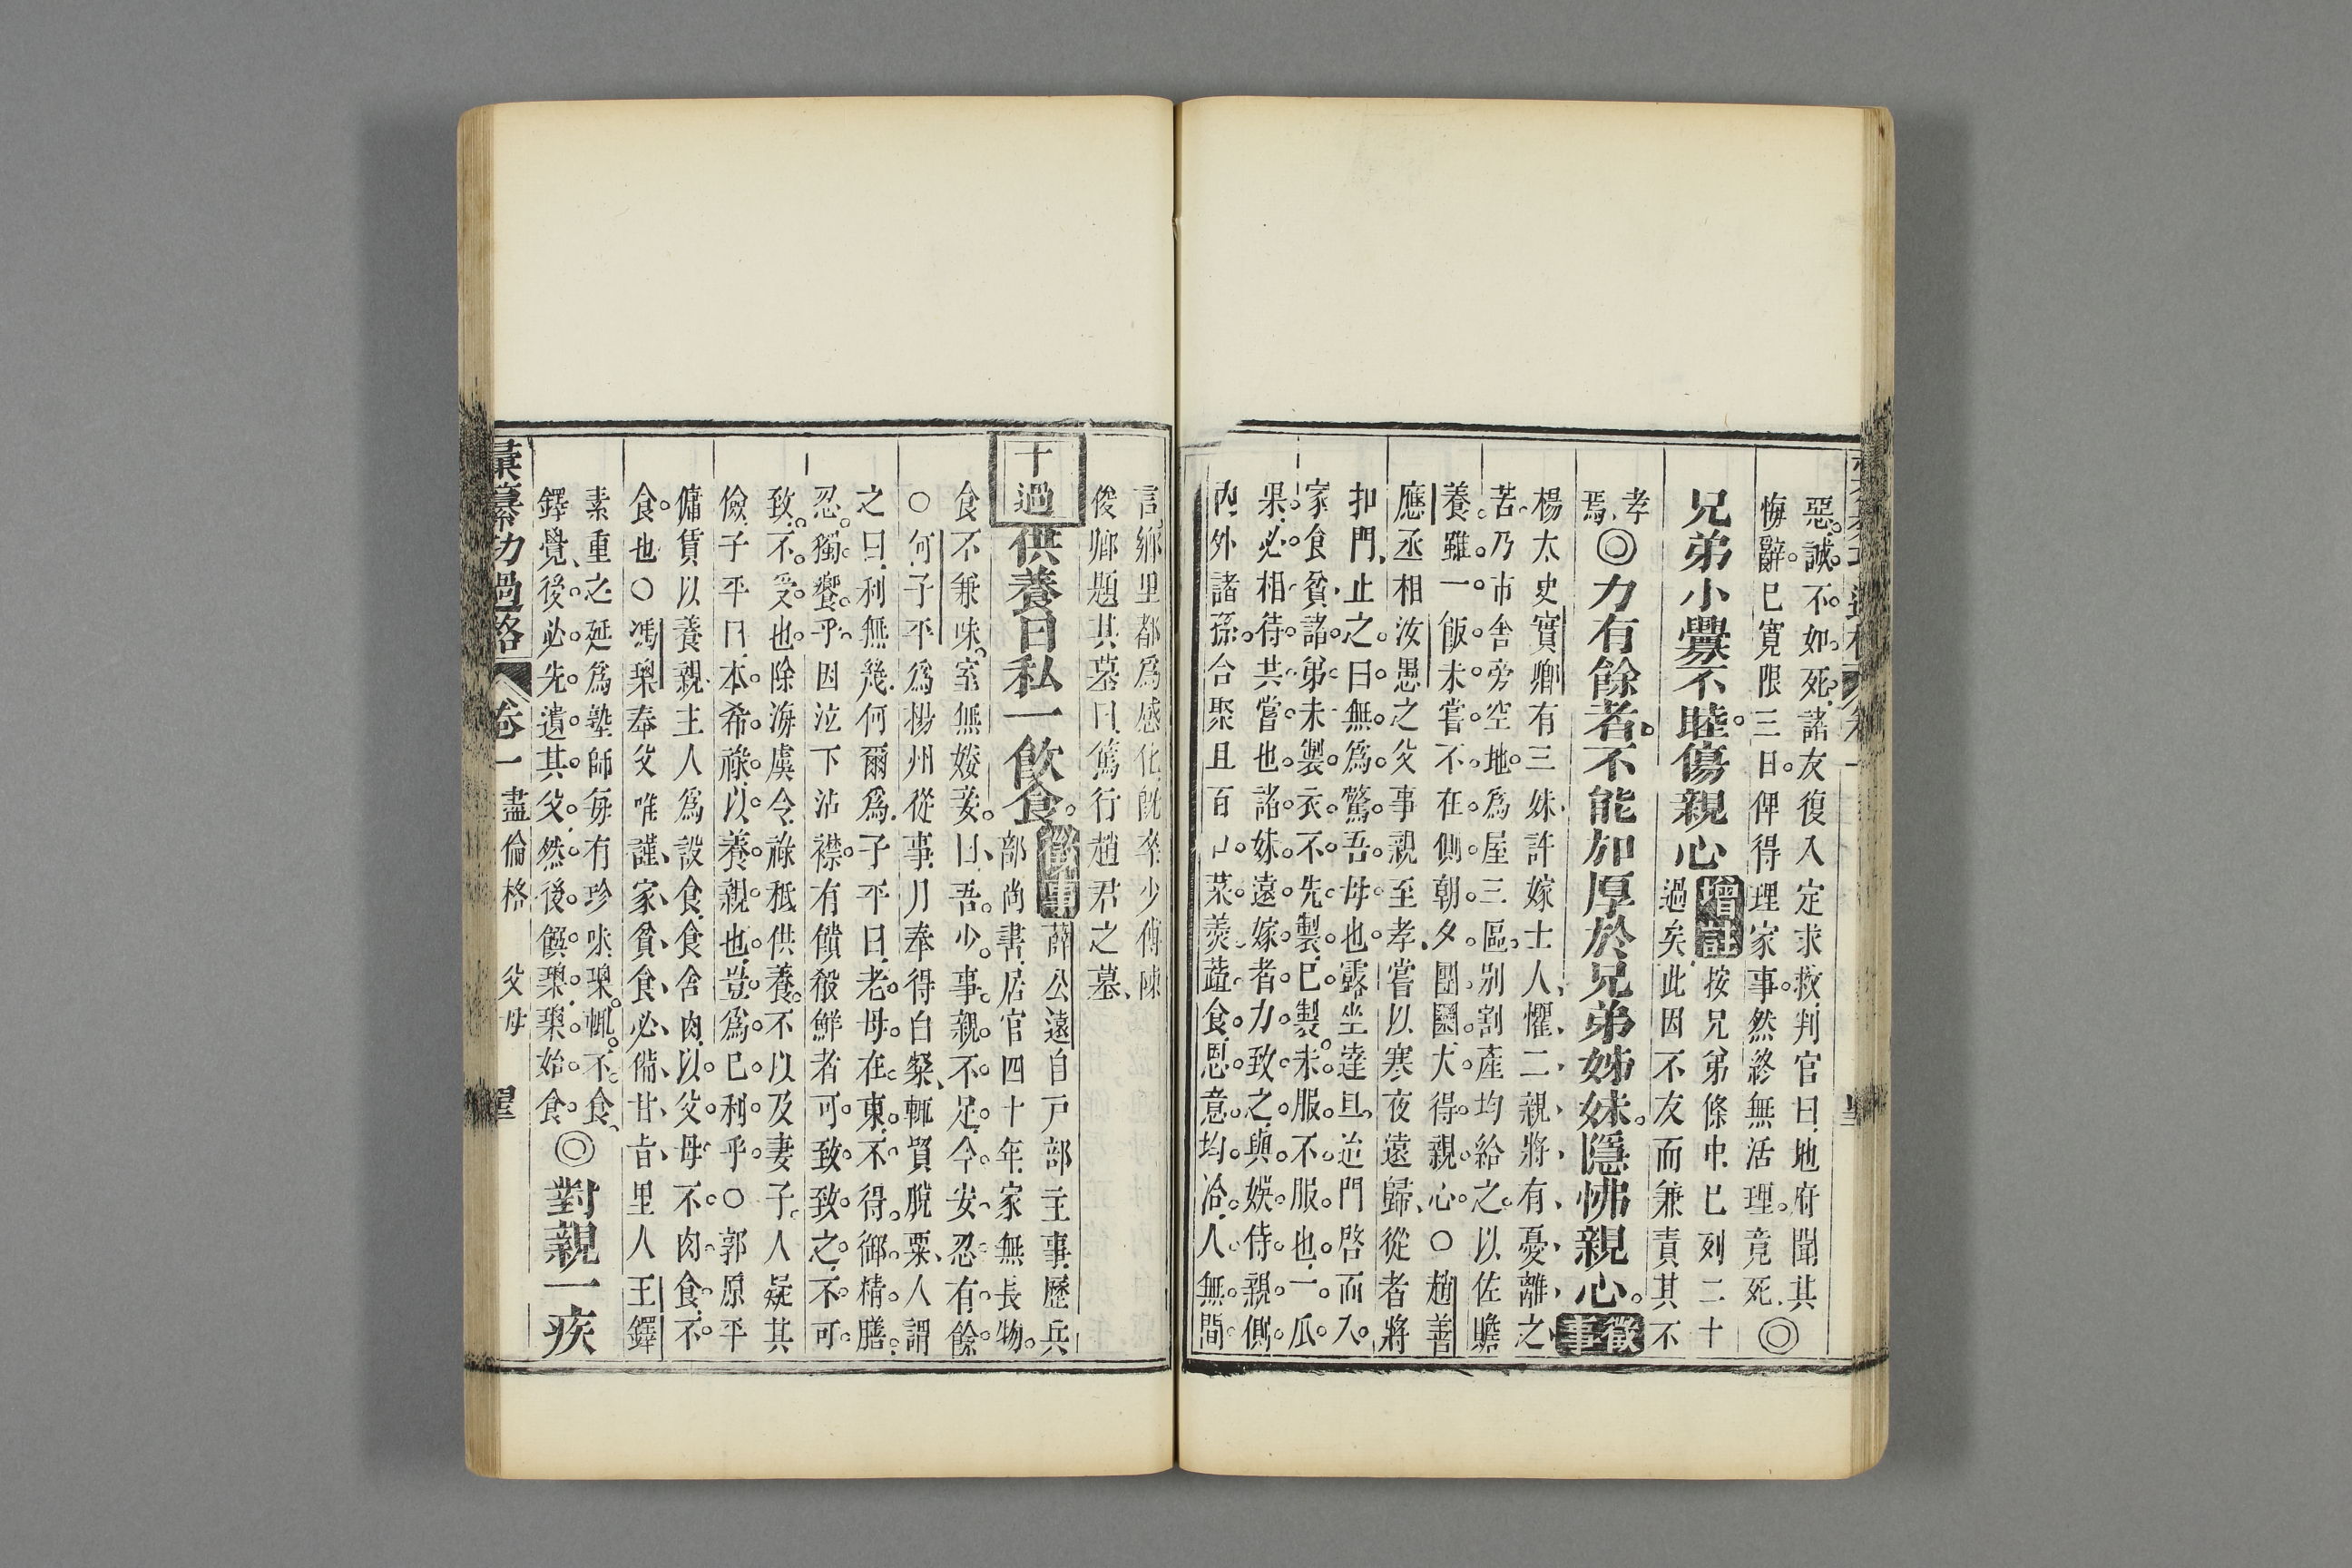 惡誠不如死諸友復入定求救判官曰地府聞其
悔辭已寬限三日俾得理家事然終無活理竟死◎
兄弟小釁不睦傷親心增註按兄弟條中已列二十
過矣此因不友而兼責其不
孝
焉◎力有餘者不能加厚於兄弟姊妹隱怫親心徵事
楊太史實卿有三妹許嫁士人懼二親將有憂離之
苦乃市舍旁空地為屋三區別割產均給之以佐贍
養雖一飯未嘗不在側朝夕團圞大得親心○趙善
應丞相汝愚之父事親至孝嘗以寒夜遠歸從者將
扣門止之曰無為驚吾母也露坐達旦迨門啓而入
家食貧諸弟未製衣不先製已製未服不服也一瓜
果必相待共嘗也諸妹遠嫁者力致之與娛侍親側
內外諸孫合聚且百口菜羮蔬食恩意均洽人無間
言鄉里都為感化既卒少傅陳
俊卿題其墓曰篤行趙君之墓
十過供養日私一飲食徵事薛公遠自戸部主事歷兵
部尚書居官四十年家無長物
食不兼味室無姣妾曰吾少事親不足今安忍有餘
○何子平為揚州從事月奉得白粲輒貿脫粟人謂
之曰利無幾何爾為子平曰老母在東不得御精膳
忍獨饗乎因泣下沾襟有饋殽鮮者可致致之不可
致不受也除海虞令祿秪供養不以及妻子人疑其
儉子平曰本希祿以養親也豈為己利乎○郭原平
傭賃以養親主人為設食食舍肉以父母不肉食不
食也○馮瓛奉父唯謹家貧食必備甘旨里人王鐸
素重之延為塾師每有珍味瓛輒不食
鐸覺後必先遺其父然後饌瓛瓛始食◎對親一疾
彙纂功過格 卷一 盡倫格 父母